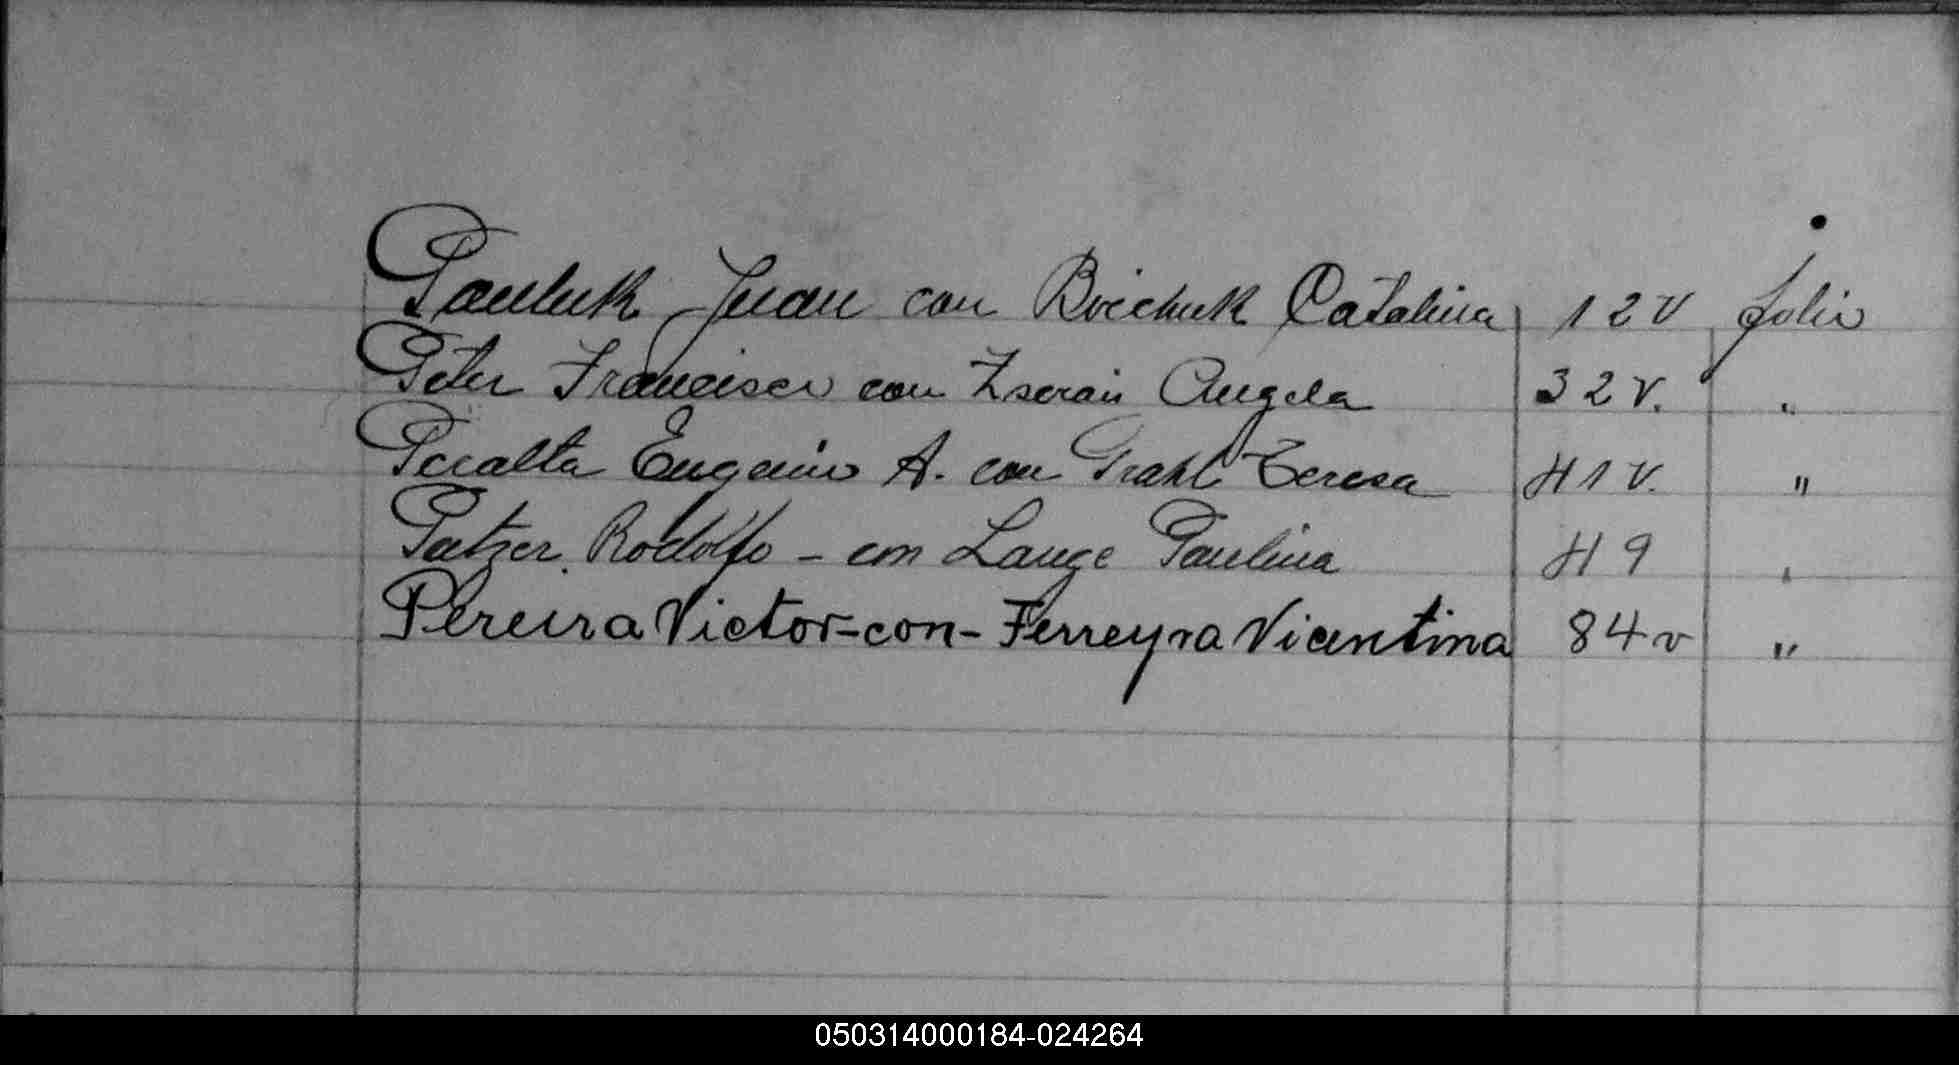 Pauluk Juan con Boichuk Catalina 12 v folio
Peter Francisco con Angela 32 v. "
Peralta Eugenio A. con Prahl Teresa 41 v. "
Patzer Rodolfo - con Lange Paulina 49 "
Pereira Victor-con-Ferreyra Vicentina 84 v "
050314000184-024264